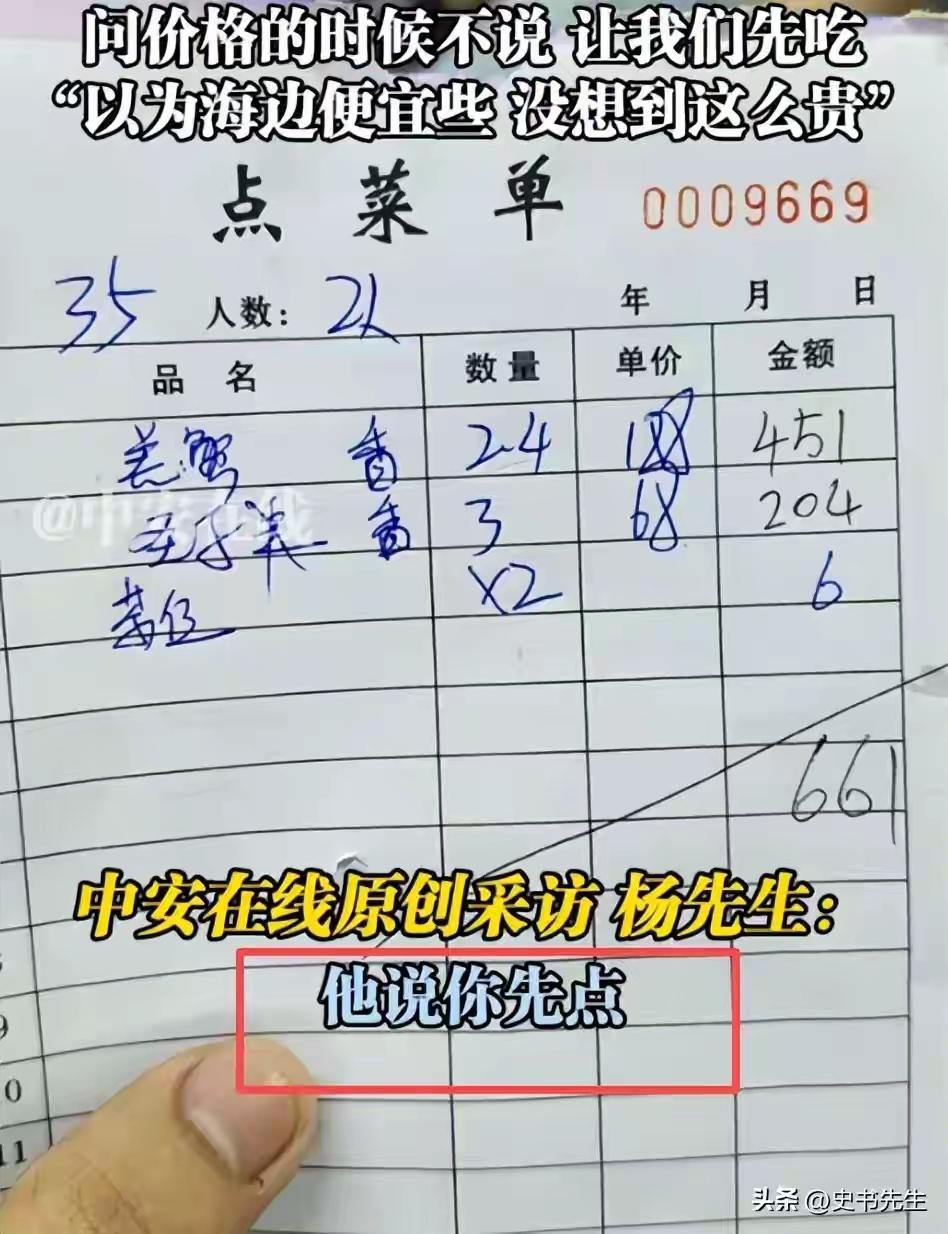 问价格的时候不说 让我们先吃
“以为海边便宜些 没想到这么贵”
点菜单 0009669
35 人数: 2人 年 月 日
品 名 数量 单价 金额
羔蟹 香 2.4 188 451
@中安在线
香 3 68 204
茶位 x2 6
661
中安在线原创采访 杨先生:
他说你先点
9
10
11
头条 @史书先生